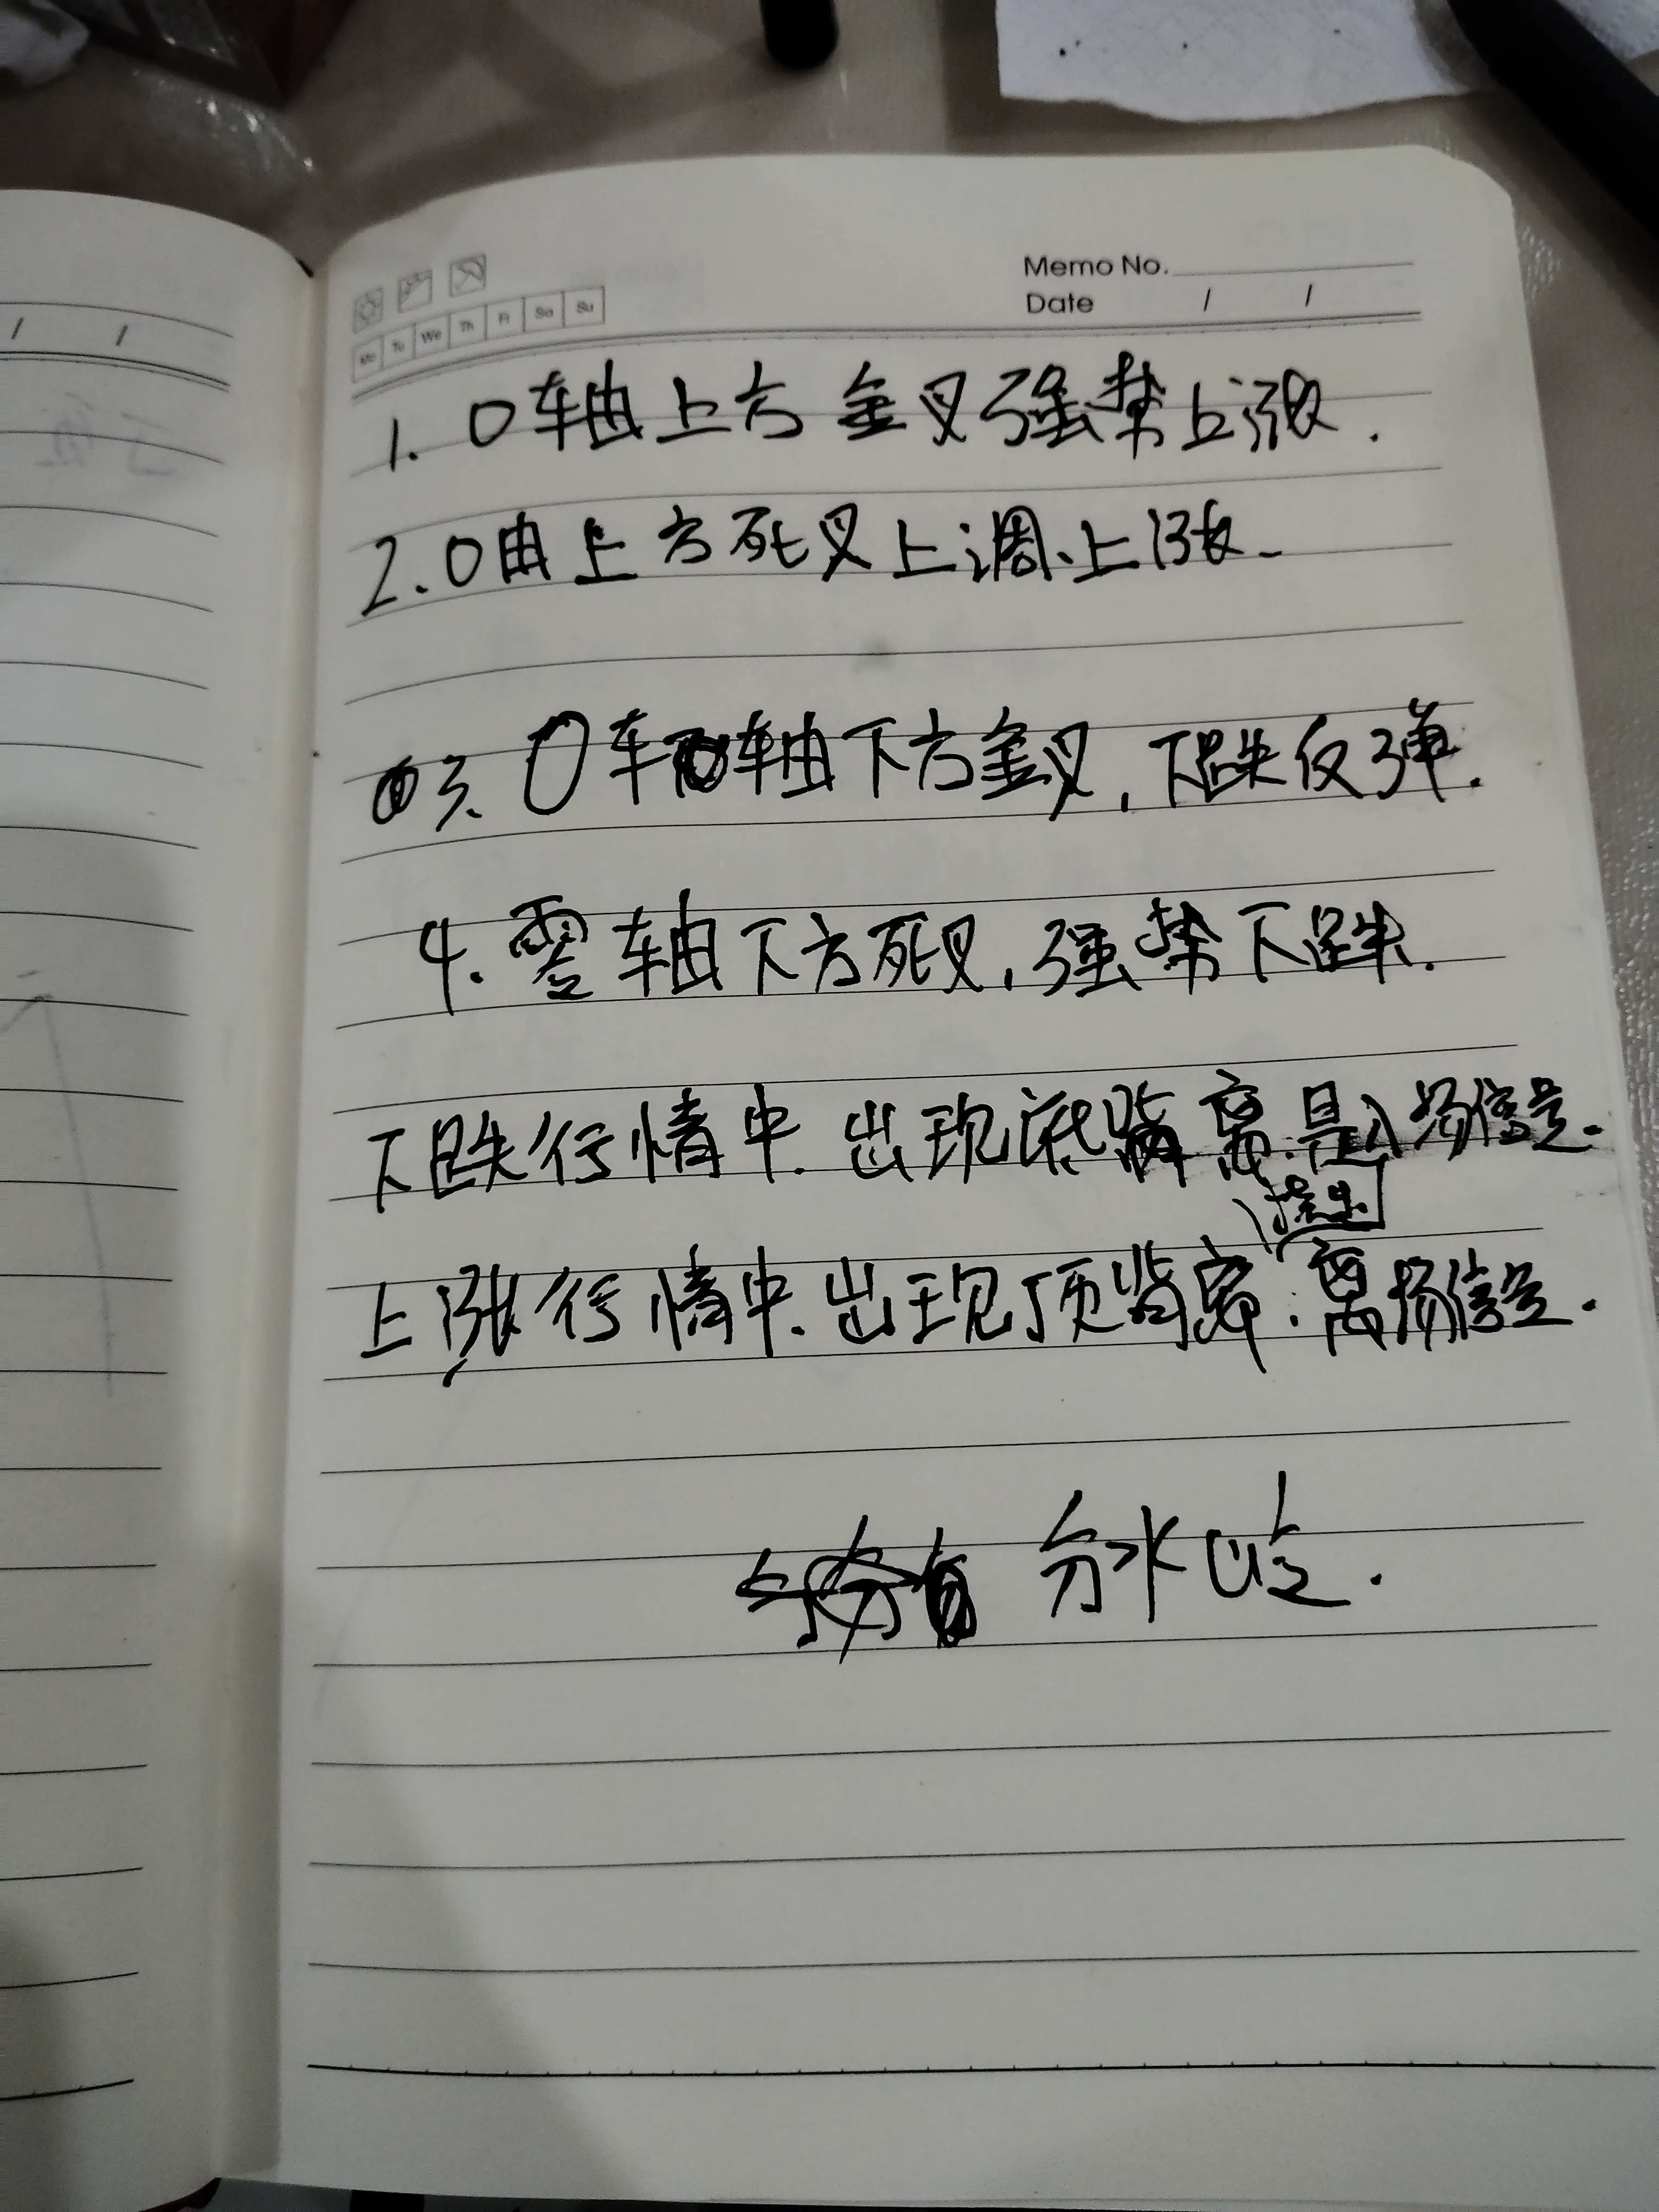 Memo No.
Date / /
Mo Tu We Th Fr Sa Su
1. 0轴上方金叉强势上涨.
2. 0由上方死叉上调、上涨.
3. 0车轴下方金叉,下跌反弹.
4. 零轴下方死叉,强势下跌.
下跌行情中.出现底背离.是入场信号.
提出
上涨行情中.出现顶背离.离场信号.
分水岭.